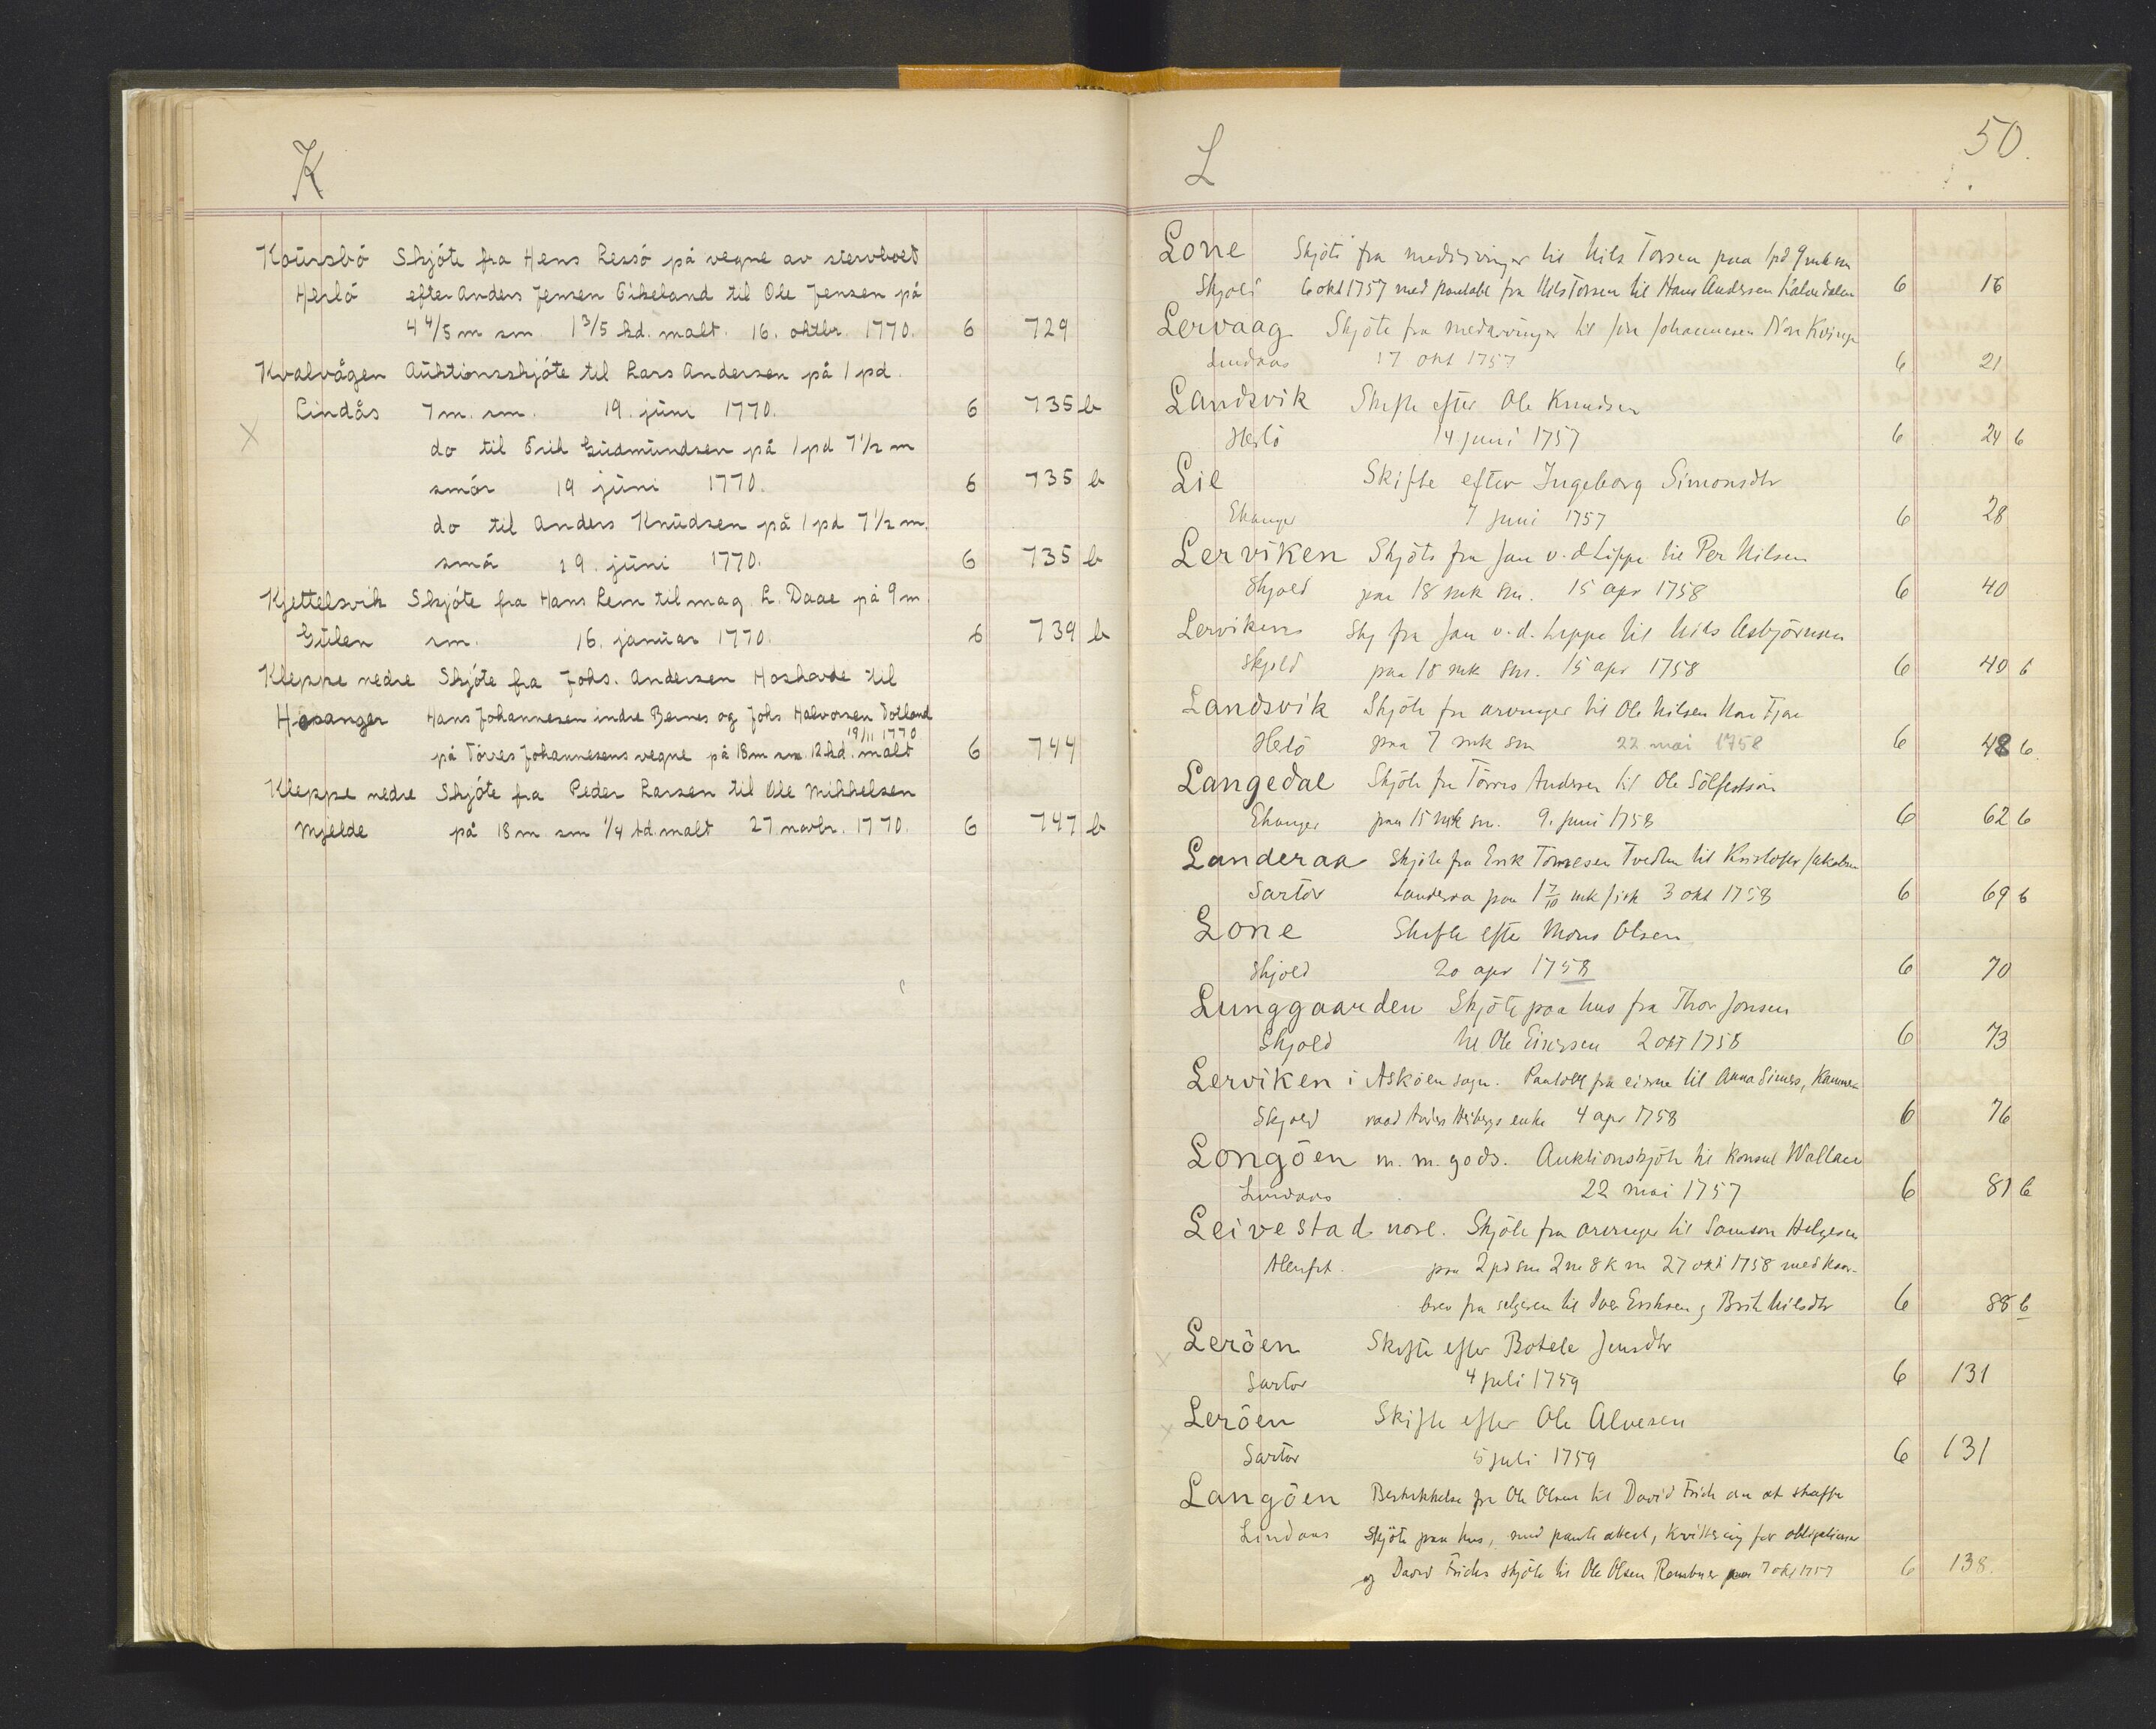 K
Kaursbö Skjóte fra Hens Lessö på vegne av stervboet
Herlö efter Anders Jensen Eikeland til Ole Jensen på
4 4/5 m sm. 1 3/5 hd. malt. 16. oktbr. 1770. 6 729
Kvalvågen Auktionsskjóte til Lars Andersen på 1 pd.
Lindås 7 m. sm. 19. juni 1770. 6 735 b
X
do til Erik Gudmundsen på 1 pd 7 1/2 m
smör 19 juni 1770. 6 735 b
do til Anders Knudsen på 1 pd 7 1/2 m.
smö 19. juni 1770. 6 735 b
Kjettelsvik Skjóte fra Hans Lem til mag. L. Daae på 9 m
Gulen sm. 16. januar 1770. 6 739 b
Kleppe nedre Skjóte fra Johs. Andersen Hoshovde til
Hosanger Hans Johannesen indre Bernes og Johs Halvorsen Totland
19/11 1770
på Törres Johannesens vegne på 18 m sm. 12 hd. malt 6 744
Kleppe nedre Skjóte fra Peder Larsen til Ole Mikkelsen
Mjelde på 18 m sm 1/4 td. malt 27. novbr. 1770. 6 747 b
L
50.
Lone Skjöte fra medarvinger til Nils Torsen paa 1 pd 9 mk sm
Skjold 6 okt 1757 med panteobl fra Nils Torsen til Hans Anderssen Kalvedalen 6 16
Lervaag Skjöte fra medarvinger til Jon Johannesen Nore Kvinge
Lindaas 17 okt 1757 6 21
Landsvik Skifte efter Ole Knudsen
Herlö 14 juni 1757 6 24 b
Lie Skifte efter Ingeborg Simonsdtr
Ekanger 7 juni 1757 6 28
Lerviken Skjöte fra Jan v. d Lippe til Per Nilsen
Skjold paa 18 mk sm. 15 apr 1758 6 40
Lerviken Skj fra Jan v. d. Lippe til Nils Asbjörnsen
Skjold paa 18 mk sm. 15 apr 1758 6 40 b
Landsvik Skjöte fra arvinger til Ole Nilsen Nore Fjæ
Helö paa 7 mk sm 22 mai 1758 6 48 b.
Langedal Skjöte fra Törres Andersen til Ole Sölfestsön
Ekanger paa 15 mk sm. 9. juni 1758 6 62 b
Landeraa Skjöte fra Erik Tomesen Tvedten til Kristofer Jakobsen
Sartor Landeraa paa 1 7/10 mk fisk 3 okt 1758 6 69 b
Lone Skifte efter Mons Olsen
Skjold 20 apr 1758 6 70
Lunggaarden Skjöte paa hus fra Thor Jonsen
Skjold til Ole Einersen 2 okt 1758 6 73
Lerviken i Asköen sogn. Panteobl fra eierne til Anna Simers, Kammer
Skjold raad Anders Heibergs enke 4 apr 1758 6 76
Longöen m. m. gods. Auktionsskjöte til Konsul Wallace
Lindaas 22 mai 1757 6 81 b
Leivestad nore. Skjöte fra arvinger til Samson Helgesen
Alenfit. paa 2 pd sm 2 m 8 k m 27 okt 1758 med kaar-
brev fra selgeren til Iver Eriksen og Brite Nilsdtr 6 88 b
Leröen Skifte efter Botele Jensdtr
x
Sartor 4 juli 1759 6 131
Leröen Skifte efter Ole Alvesen
x
Sartor 5 juli 1759 6 131
Langöen Beskikkelse fra Ole Olsen til David Frich om at skaffe
Lindaas Skjöte paa hus, med pante attest, Kvittering for obligationer
og David Frichs skjöte til Ole Olsen 7 okt 1757 6 138.